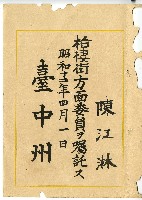 陳江淋
梧棲街方面委員ヲ囑託ス
昭和十三年四月一日
臺中州